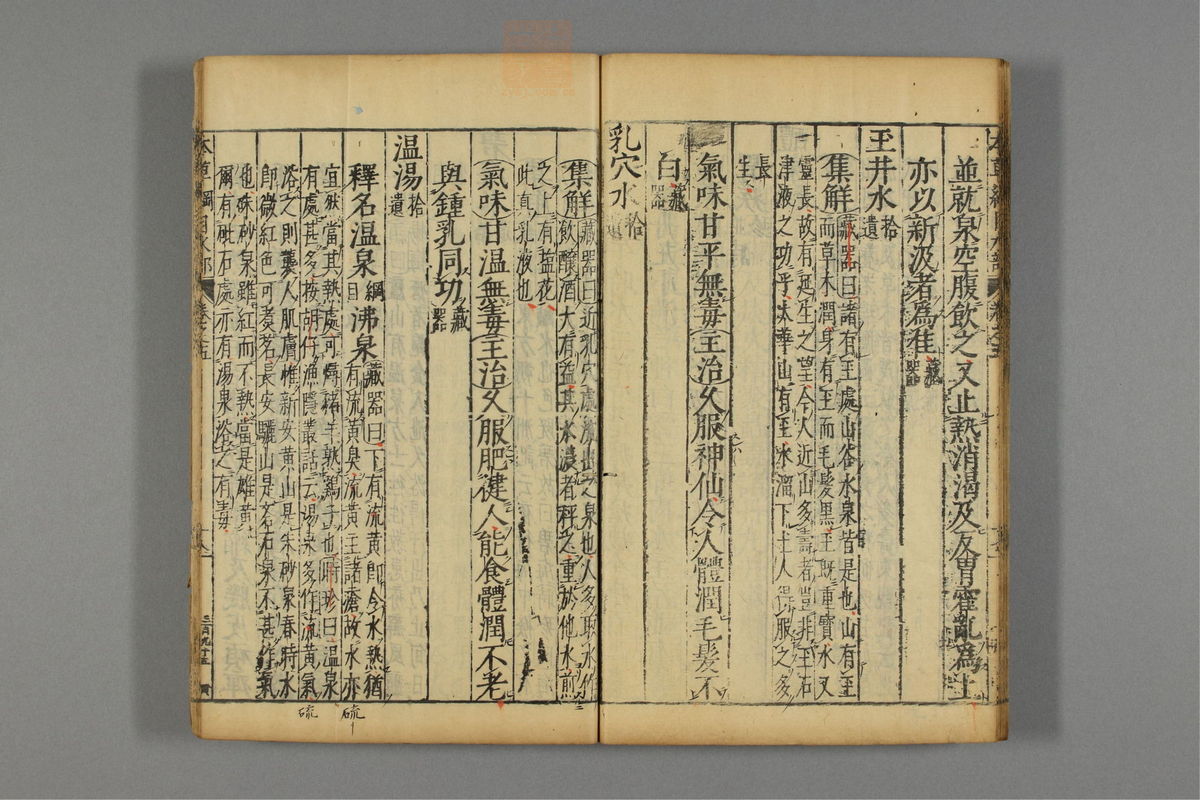 並就泉空腹飲之又止熱消渴及反胃霍亂為上
亦以新汲者為佳藏器
玉井水拾遺
集解藏器曰諸有玉處山谷水泉皆是也山有玉
而草木潤身有玉而毛髮黑玉既重寶水又
靈長故有延生之望今人近山多壽者豈非玉石
津液之功乎太華山有玉水溜下土人得服之多
長
生
氣味甘平無毒主治久服神仙令人體潤毛髮不
白藏器
乳穴水拾遺
集解藏器曰近乳穴處流出之泉也人多取水作
飲釀酒大有益其水濃者秤之重於他水煎
之上有鹽花
此真乳液也
氣味甘温無毒主治久服肥健人能食體潤不老
與鍾乳同功藏器
温湯拾遺
釋名温泉綱目沸泉藏器曰下有流黃即令水熱猶
有流黃臭流黃主諸瘡故水亦
宜然當其熱處可燖豬羊熟雞子也時珍曰温泉
有處甚多按胡仔漁隱叢話云湯泉多作流黃氣
浴之則襲人肌膚惟新安黃山是朱砂泉春時水
即微紅色可煮茗長安驪山是礜石泉不甚作氣
也朱砂泉雖紅而不熱當是雄黃
爾有砒石處亦有湯泉浴之有毒
本草綱目水部
卷之五
三百九十五
硫
硫